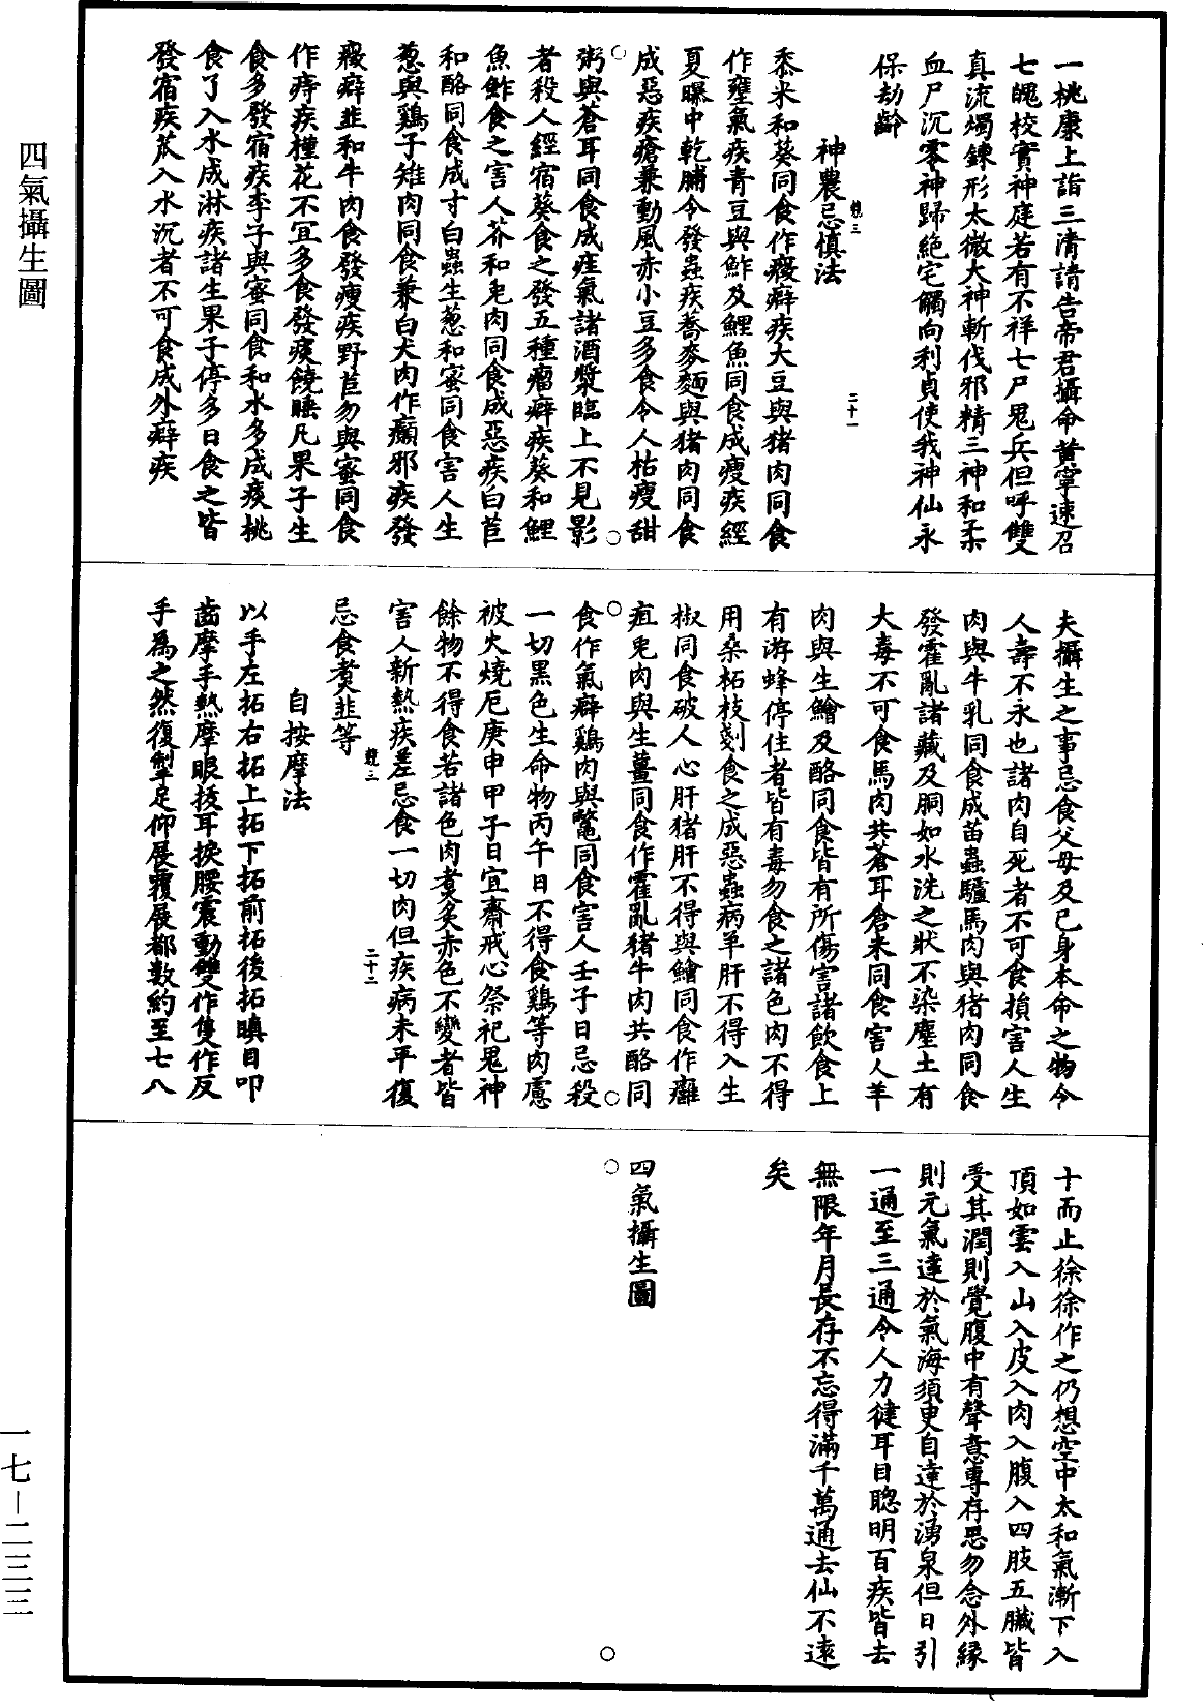 四氣攝生圖
一桃康上詣三清請告帝君攝命黃寧速召
七魄校實神庭若有不祥七尸鬼兵但呼雙
真流燭鍊形太微大神斬伐邪精三神和柔
血尸沉零神歸絶宅觸向利貞使我神仙永
保劫齡
神農忌慎法
競三 二十一
黍米和葵同食作癥癖疾大豆與猪肉同食
作壅氣疾青豆與鮓及鯉魚同食成瘦疾經
夏曝中乾脯令發蟲疾蕎麥麵與猪肉同食
成惡疾瘡兼動風赤小豆多食令人枯瘦甜
粥與蒼耳同食成疰氣諸酒漿臨上不見影
者殺人經宿葵食之發五種瘤癖疾葵和鯉
魚鮓食之害人芥和兎肉同食成惡疾白苣
和酪同食成寸白蟲生葱和蜜同食害人生
葱與鷄子雉肉同食兼白犬肉作癲邪疾發
癥癖韭和牛肉食發瘦疾野苣勿與蜜同食
作痔疾槿花不宜多食發痰饒睡凡果子生
食多發宿疾李子與蜜同食和水多成痰桃
食了入水成淋疾諸生果子停多日食之皆
發宿疾苽入水沉者不可食成外癖疾
夫攝生之事忌食父母及己身本命之物令
人壽不永也諸肉自死者不可食損害人生
肉與牛乳同食成苗蟲驢馬肉與猪肉同食
發霍亂諸藏及胴如水洗之狀不染塵土有
大毒不可食馬肉共蒼耳倉米同食害人羊
肉與生鱠及酪同食皆有所傷害諸飲食上
有游蜂停住者皆有毒勿食之諸色肉不得
用桑柘枝剗食之成惡蟲病羊肝不得入生
椒同食破人心肝猪肝不得與鱠同食作癰
疽兎肉與生薑同食作霍亂猪牛肉共酪同
食作氣癖鷄肉與鼈同食害人壬子日忌殺
一切黑色生命物丙午日不得食鷄等肉慮
被火燒厄庚申甲子日宜齋戒心祭祀鬼神
餘物不得食若諸色肉煮炙赤色不變者皆
害人新熱疾差忌食一切肉但疾病未平復
競三 二十二
忌食煑韭等
自按摩法
以手左拓右拓上拓下拓前拓後拓瞋目叩
齒摩手熱摩眼挼耳捩腰震動雙作隻作反
手為之然復掣足仰展覆展都數約至七八
十而止徐徐作之仍想空中太和氣漸下入
頂如雲入山入皮入肉入腹入四肢五臟皆
受其潤則覺腹中有聲意專存思勿念外緣
則元氣達於氣海須臾自達於湧泉但日引
一通至三通令人力健耳目聰明百疾皆去
無限年月長存不忘得滿千萬通去仙不遠
矣
四氣攝生圖
一七—二三三